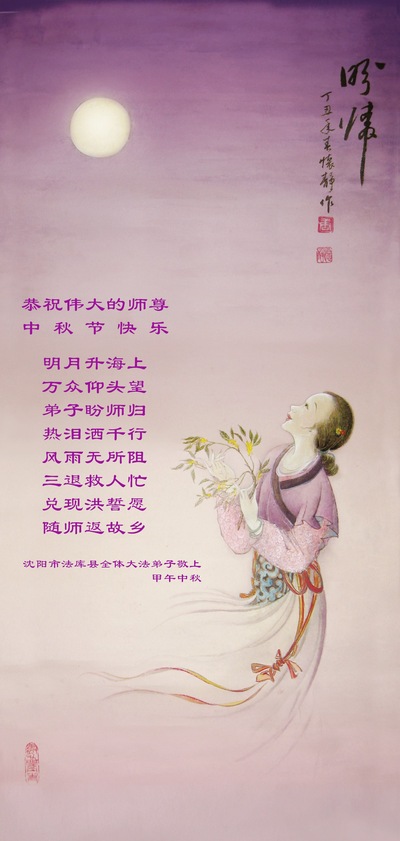 盼归
丁丑年春怀静作
恭祝伟大的师尊
中秋节快乐
明月升海上
万众仰头望
弟子盼师归
热泪洒千行
风雨无所阻
三退救人忙
兑现洪誓愿
随师返故乡
沈阳市法库县全体大法弟子敬上
甲午中秋